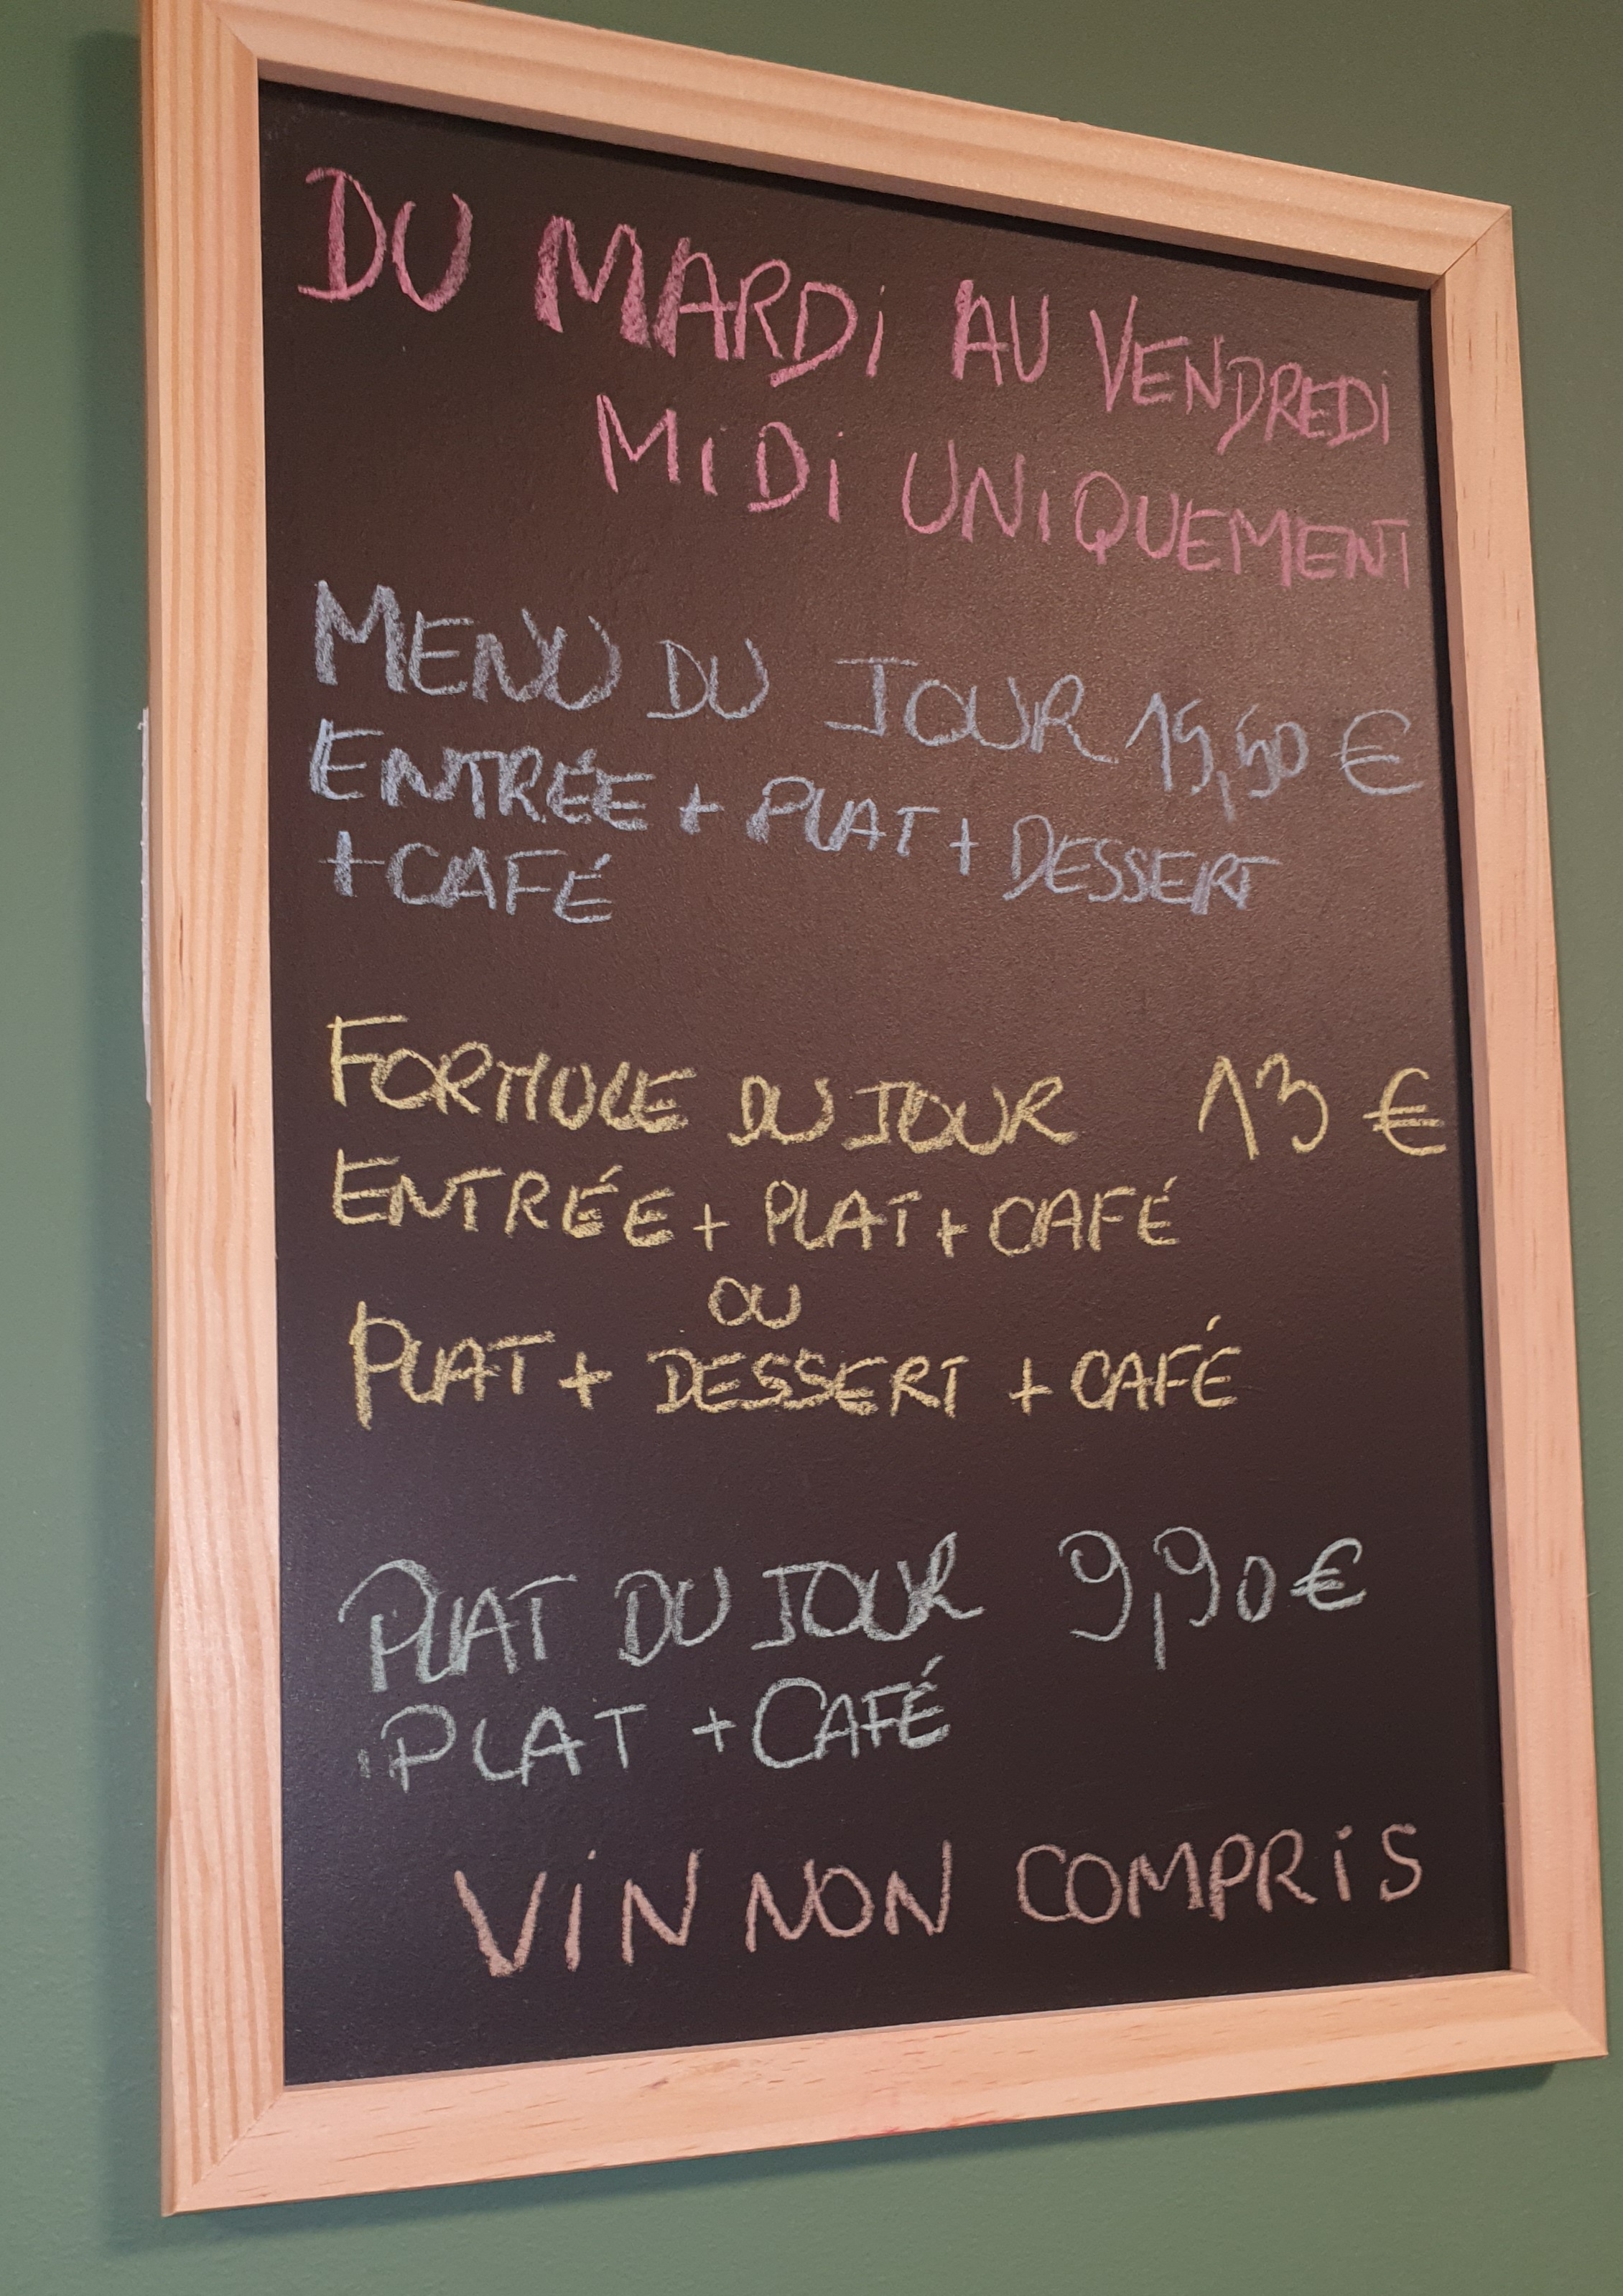 DU MARDi AU VENDREDi
MiDi UNiQUEMENT
MENU DU JOUR 15,50 €
ENTRÉE + PLAT + DESSERT
+ CAFÉ
FORMULE DU JOUR 13 €
ENTRÉE + PLAT + CAFÉ
OU
PLAT + DESSERT + CAFÉ
PLAT DU JOUR 9,90 €
PLAT + CAFÉ
ViN NON COMPRiS